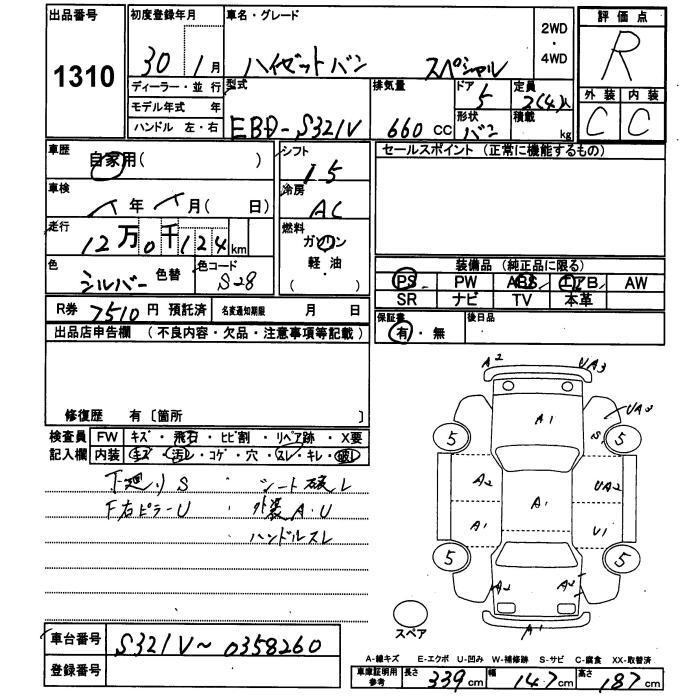 出品番号
1310
初度登録年月
30 1月
車名・グレード
ハイゼットバン スペシャル
2WD
・
4WD
評価点
R
外装 内装
C C
ディーラー・並行
モデル年式 年
ハンドル 左・右
型式
EBD-S321V
排気量
660 CC
ドア
5
形状
バン
定員
2(4)人
積載
kg
車歴
自家用( )
シフト
I5
セールスポイント (正常に機能するもの)
車検
年 月( 日)
冷房
AC
走行
12万0千124km
燃料
ガソリン
軽・油
( )
色
シルバー 色替
色コード
S28
装備品 (純正品に限る)
PS PW ABS エアB AW
SR ナビ TV 本革
R券 7510円 預託済
名変通知期限 月 日
保証書
有・無
後日品
出品店申告欄 (不良内容・欠品・注意事項等記載)
修復歴 有〔箇所 〕
検査員
記入欄
FW キズ・飛石・ヒビ割・リペア跡・X要
内装 キズ・汚レ・コゲ・穴・スレ・キレ・破レ
下廻りS シート破レ
F右ピラーU 外装A・U
ハンドルスレ
A2 UA3
A1 UA3
5 S 5
A2 A1 UA2
A1 U1
5 5
A2 A2
A1
スペア
車台番号 S321V~0358260
登録番号
A-線キズ E-エクボ U-凹み W-補修跡 S-サビ C-腐食 XX-取替済
車庫証明用
参考
長さ 339cm 幅 147cm 高さ 187cm